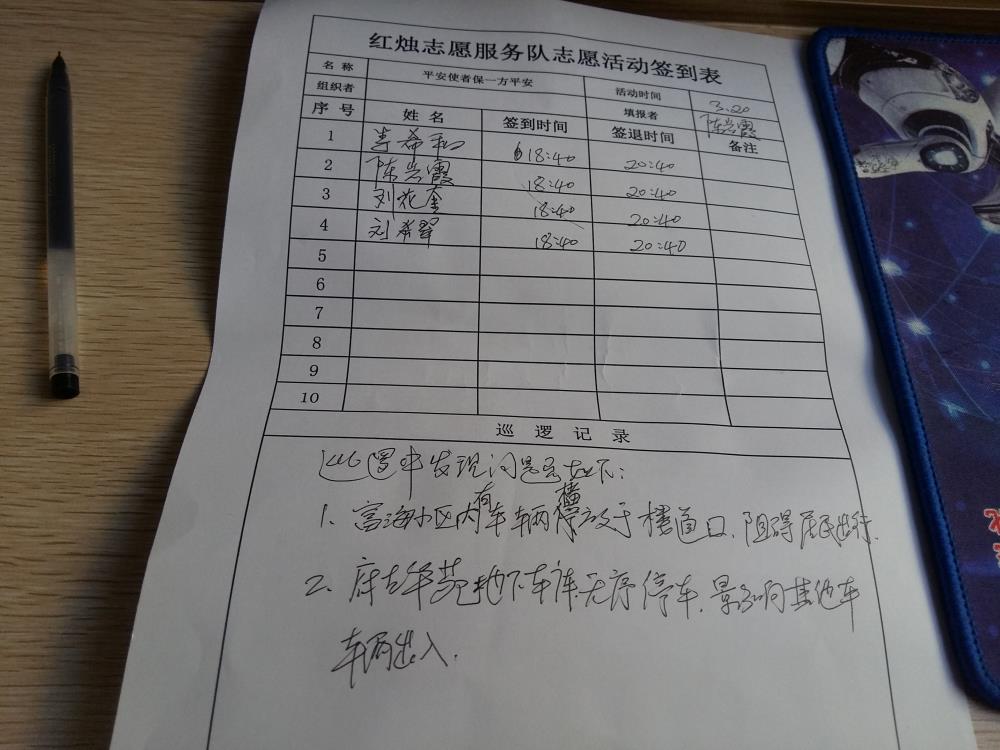 红烛志愿服务队志愿活动签到表
名 称 平安使者保一方平安 活动时间 3.20
组织者 填报者 陈岩霞
序 号 姓 名 签到时间 签退时间 备注
1 希和 18:40 20:40
2 陈岩霞 18:40 20:40
3 刘花奎 18:40 20:40
4 刘希翠 18:40 20:40
5
6
7
8
9
10
巡 逻 记 录
巡逻中发现问题如下:
1. 富海小区内有车辆横停放于楼道口, 阻碍居民出行.
2. 府古华苑地下车库无序停车, 影响其他车
车辆出入.